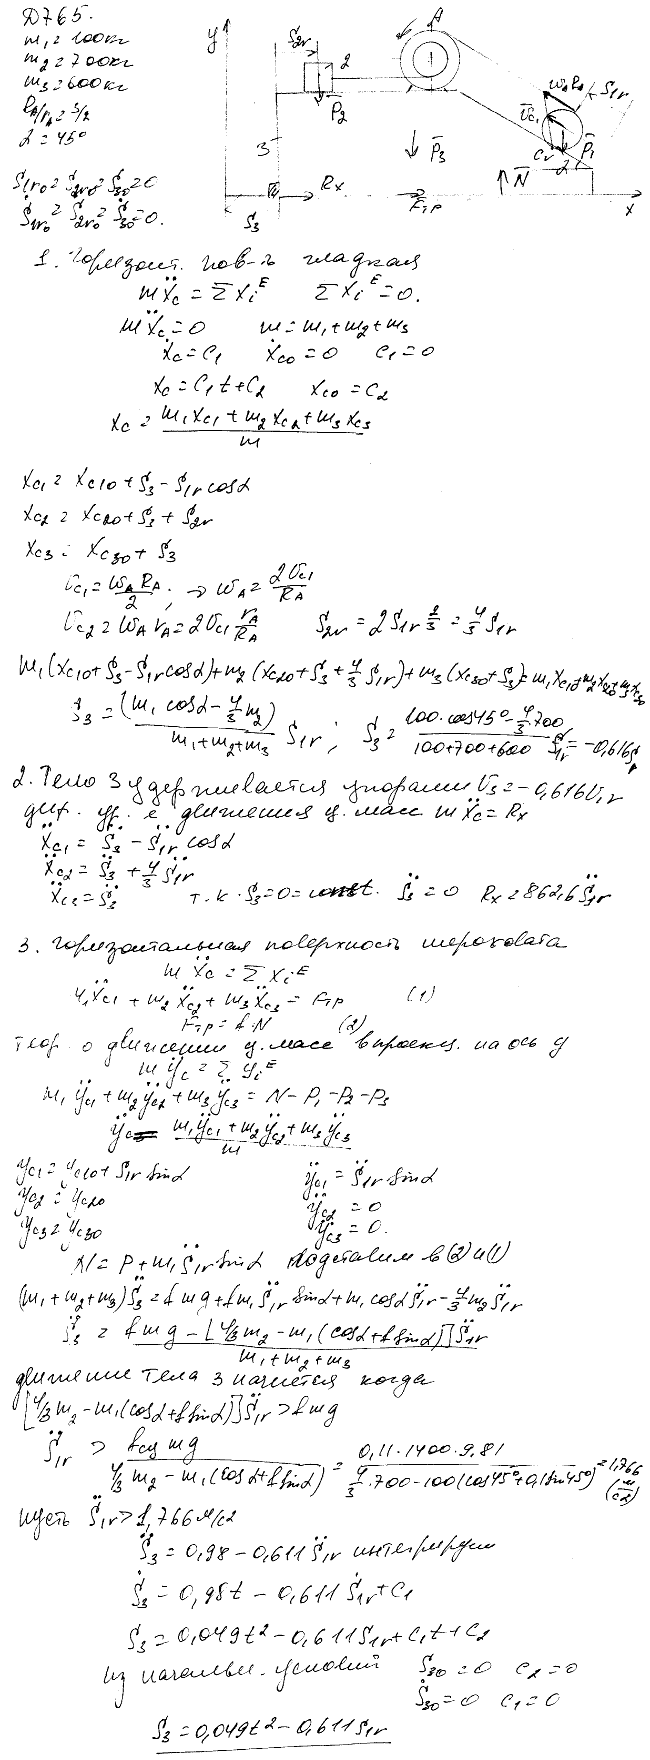 Д765.
m₁ = 100кг
m₂ = 700кг
m₃ = 600кг
R_A/r_A = 3/2
α = 45°
S₁r₀ = S₂r₀ = S₃₀ = 0
Ṡ₁r₀ = Ṡ₂r₀ = Ṡ₃₀ = 0.
y
S₂r
2
A
P̄₂
3
P̄₃
ω_A R_A
S₁r
V̄c₁
P̄₁
α
N̄
Rx
Fтр
S₃
x
1. Горизонт. пов-ть гладкая
mẍc = Σxᵢᴱ Σxᵢᴱ = 0.
mẍc = 0 m = m₁ + m₂ + m₃
ẋc = C₁ ẋco = 0 C₁ = 0
xc = C₁t + C₂ xco = C₂
xc = (m₁xc₁ + m₂xc₂ + m₃xc₃)/m
xc₁ = xc₁₀ + S₃ - S₁r cosα
xc₂ = xc₂₀ + S₃ + S₂r
xc₃ = xc₃₀ + S₃
Vc₁ = ω_A R_A/2; → ω_A = 2Vc₁/R_A
Vc₂ = ω_A r_A = 2Vc₁ r_A/R_A S₂r = 2S₁r 2/3 = 4/3 S₁r
m₁(xc₁₀ + S₃ - S₁r cosα) + m₂(xc₂₀ + S₃ + 4/3 S₁r) + m₃(xc₃₀ + S₃) = m₁xc₁₀ + m₂xc₂₀ + m₃xc₃₀
S₃ = (m₁ cosα - 4/3 m₂)/(m₁ + m₂ + m₃) S₁r; S₃ = (100·cos45° - 4/3·700)/(100+700+600) S₁r = -0,616S₁r
2. Тело 3 удерживается упорами V₃ = -0,616V₁r
диф. ур. е движения ц. масс mẍc = Rx
ẍc₁ = S̈₃ - S̈₁r cosα
ẍc₂ = S̈₃ + 4/3 S̈₁r
ẍc₃ = S̈₃ т.к. S₃ = 0 = const. S̈₃ = 0 Rx = 862,6 S̈₁r
3. Горизонтальная поверхность шероховата
mẍc = Σxᵢᴱ
m₁ẍc₁ + m₂ẍc₂ + m₃ẍc₃ = Fтр (1)
Fтр = f·N (2)
теор. о движении ц. масс в проекц. на ось y
mÿc = Σyᵢᴱ
m₁ÿc₁ + m₂ÿc₂ + m₃ÿc₃ = N - P₁ - P₂ - P₃
ÿc = (m₁ÿc₁ + m₂ÿc₂ + m₃ÿc₃)/m
yc₁ = yc₁₀ + S₁r sinα ÿc₁ = S̈₁r sinα
yc₂ = yc₂₀ ÿc₂ = 0
yc₃ = yc₃₀ ÿc₃ = 0.
N = P + m₁S̈₁r sinα подставим в (2) и (1)
(m₁ + m₂ + m₃)S̈₃ = fmg + fm₁S̈₁r sinα + m₁cosαS̈₁r - 4/3 m₂S̈₁r
S̈₃ = (fmg - [4/3 m₂ - m₁(cosα + f sinα)]S̈₁r)/(m₁ + m₂ + m₃)
движение тела 3 начнется когда
[4/3 m₂ - m₁(cosα + f sinα)]S̈₁r > fmg
S̈₁r > fсц mg/(4/3 m₂ - m₁(cosα + f sinα)) = 0,11·1400·9,81/(4/3·700 - 100(cos45° + 0,1sin45°)) = 1,766 (м/с²)
пусть S̈₁r > 1,766 м/с²
S̈₃ = 0,98 - 0,611S̈₁r интегрируем
Ṡ₃ = 0,98t - 0,611Ṡ₁r + C₁
S₃ = 0,049t² - 0,611S₁r + C₁t + C₂
из начальн. условий S₃₀ = 0 C₂ = 0
Ṡ₃₀ = 0 C₁ = 0
S₃ = 0,049t² - 0,611S₁r